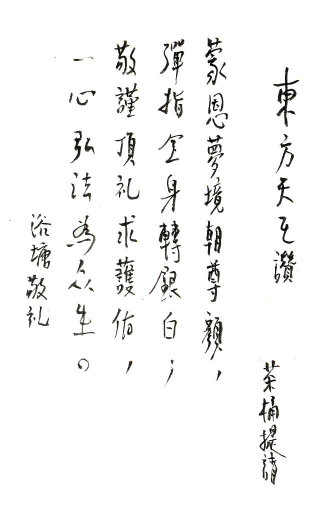 東方天王讚
菜桶提請
蒙恩夢境朝尊顏，
彈指全身轉銀白；
敬謹頂礼求護佑，
一心弘法為众生。
浴塘敬礼